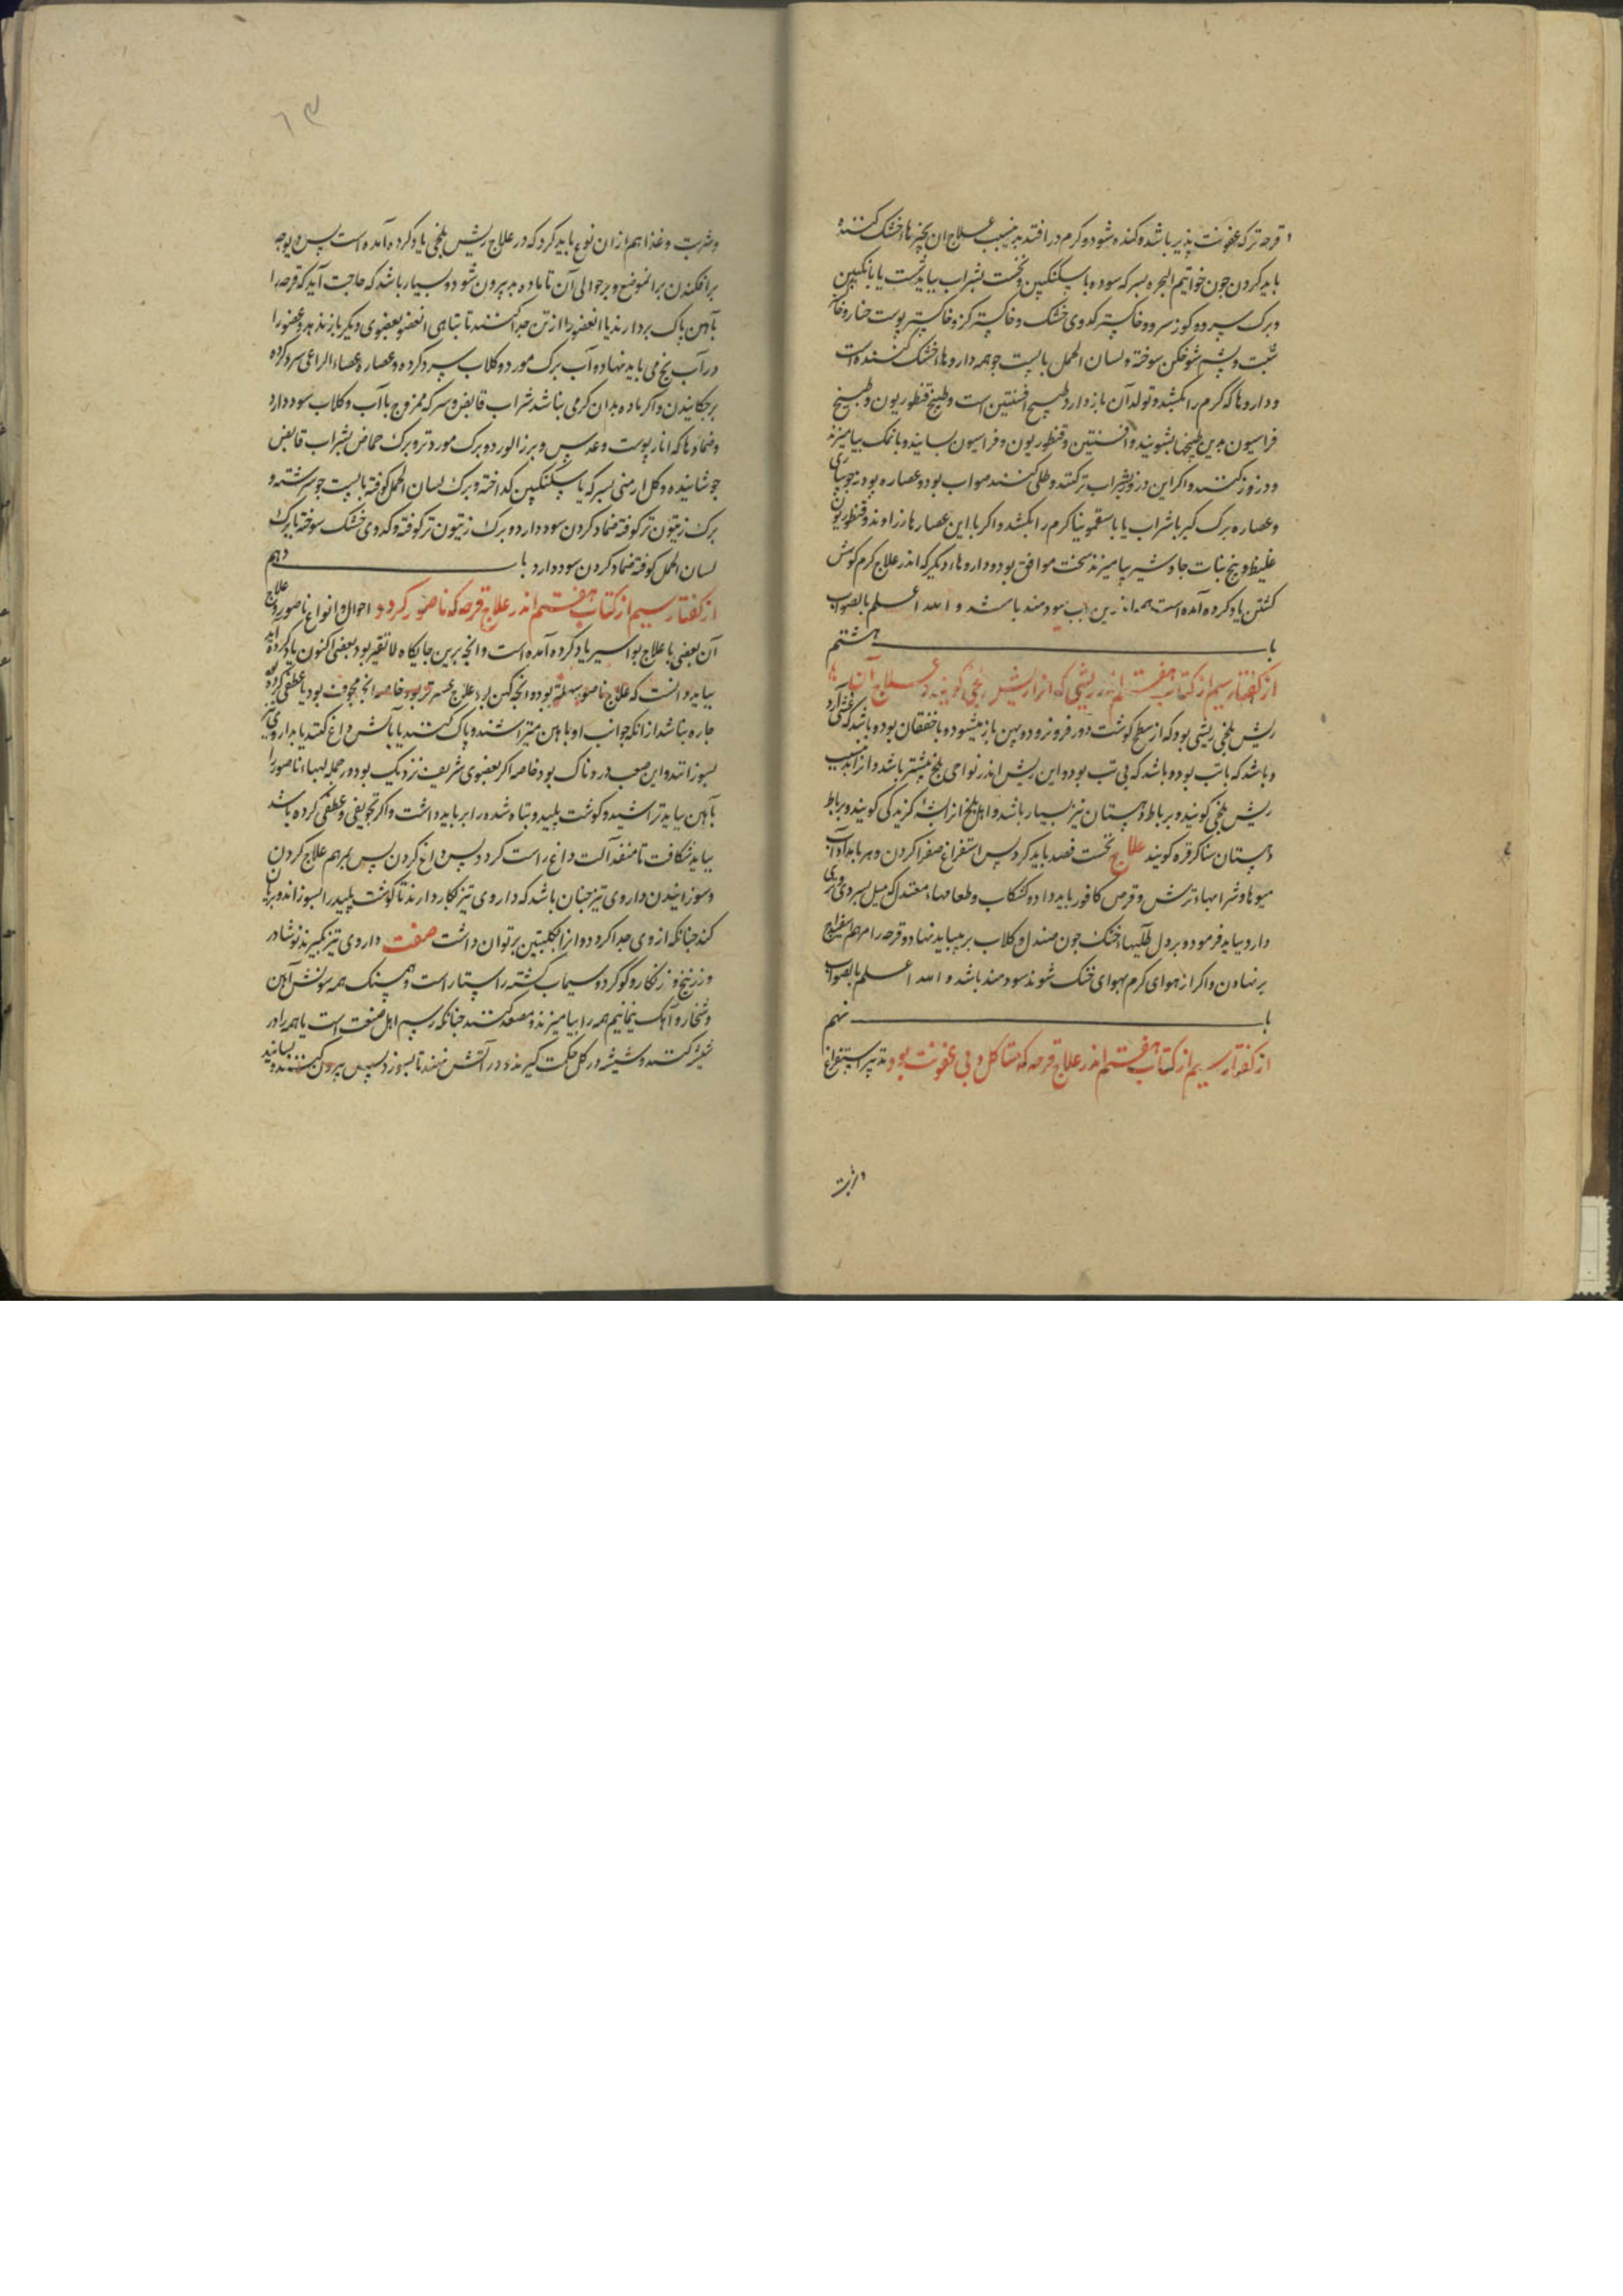 قرحه ترکه عفونت پذیر باشد و کنده شود و کرم در افتد بدینسبب علاج ان بچیزهاء خشک کننده
باید کردن جون خواتیم البحره بسرکه سوده با سکنکبین و نخست بشراب بباید شست یا بانکبین
و برک سرو و کوز سرو و خاکستر کدوی خشک و خاکستر کز و خاکستر پوست
شبت و پشم شوخکن سوخته و لسان الحمل با پست جو همه داروهاء خشک کننده است
و داروها که کرم را بکشد و تولد آن باز دارد طبیخ افسنتین است و طبیخ قنطوریون و طبیخ
فراسیون بدین طبیخها بشویند و افسنتین و قنطوریون و فراسیون بسایند و با نمک بیامیزند
و درزو کنند و اکر این درزو بشراب تر کنند و طلی کنند صواب بود و عصاره پودنه جویباری
و عصاره برک کبر با شراب یا با سقمونیا کرم را بکشد و اکر با این عصارها زراوند و قنطوریون
غلیظ و بیخ نبات جاوشیر بیامیزند سخت موافق بود و داروهاء دیکر که اندر علاج کرم کوش
کشتن یاد کرده آمده است هم اندرین باب سودمند باشد و الله اعلم بالصواب
باب هشتم
از کفتار سیم از کتاب هفتم اندر ریشی که انرا ریش بلخی کویند و علاج آن
ریش بلخی ریشی بود که از سطح کوشت دور فرو نرود و پهن باز میشود و با خفقان بود و باشد که غشی آرد
و باشد که با تب بود و باشد که بی تب بود و این ریش اندر نواحی بلخ بیشتر باشد و از اینسبب
ریش بلخی کویند و بر باط دهستان نیز بسیار باشد و اهل بلخ انرا پشه کزیدکی کویند و بر باط
دهستان سناکرقره کویند علاج نخست فصد باید کرد پس استفراغ صفرا کردن و هر بامداد آب
میوها و شرابهاء ترش و قرص کافور باید داد و کشکاب و طعامهاء معتدل که میل بسردی و تری
دارد بباید فرمود و بر دل طلیهاء خنک جون صندل و کلاب بر بباید نهاد و قرحه را مرهم اسفیداج
بر نهادن و اکر از هوای کرم بهوای خنک شوند سودمند باشد و الله اعلم بالصواب
باب نهم
از کفتار سیم از کتاب هفتم اندر علاج قرحه که متاکل و بی عفونت بود تدبیر استفراغ
و شربت
و شربت و غذا هم از ان نوع باید کرد که در علاج ریش بلخی یاد کرده آمده است پس دیوجه
بر افکندن بر انموضع و بر حوالی آن تا ماده بد بیرون شود و بسیار باشد که حاجت آید که قرحه را
بآهن پاک بردارند یا انعضو را از تن جدا کنند تا تباهی انعضو بعضوی دیکر باز ندهد و عضو را
در آب یخ می باید نهاد و آب برک مورد و کلاب سرد کرده و عصاره عصاء الراعی سرد کرده
بر چکانیدن و اکر ماده بدان کرمی نباشد شراب قابض و سرکه ممزوج با آب و کلاب سود دارد
و ضمادها که انار پوست و عدس و برز الورد و برک مورد تر و برک حماض بشراب قابض
جوشانیده و کل ارمنی بسرکه یا سکنکبین کداخته و برک لسان الحمل کوفته با پست جو سرشته و
برک زیتون تر کوفته ضماد کردن سود دارد و برک زیتون تر کوفته و کدوی خشک سوخته با برک
لسان الحمل کوفته ضماد کردن سود دارد باب دهم
از کفتار سیم از کتاب هفتم اندر علاج قرحه که ناصور کردد احوال و انواع ناصور و علاج
آن بعضی با علاج بواسیر یاد کرده آمده است و انجه برین جایکاه لایقتر بود بعضی اکنون یاد کرده آید
بباید دانست که علاج ناصور سهلتر بود و انجه کهن بود علاج عسر تر بود خاصه انجه مجوف بود یا عطفی کرده بود
جاره نباشد از انکه جوانب او باهن بتراشند و پاک کنند یا بآتش داغ کنند یا بداروی تیز
بسوزانند و این صعب و دردناک بود خاصه اکر بعضوی شریف نزدیک بود و در جمله لبهاء ناصور را
بآهن بباید تراشید و کوشت پلید و تباه شده را بر باید داشت و اکر تجویفی و عطفی کرده باشد
بباید شکافت تا منفذ آلت داغ راست کردد پس داغ کردن پس بمرهم علاج کردن
و سوزانیدن داروی تیز جنان باشد که داروی تیز بکار دارند تا کوشت پلید را بسوزاند و بریان
کند جنانکه از وی جدا کردد و انرا بکلبتین بر توان داشت صفت داروی تیز بکیرند نوشادر
و زرنیخ و زنکار و کوکرد و سیماب کشته راستار است و همسنک همه سونش آهن
و شخار و آهک نیم همه را بیامیزند و مصعد کنند جنانکه رسم اهل صنعت است یا همه را در
شیشه کنند و شیشه در کل حکمت کیرند و در آتش نهند تا بسوزد پس بیرون کنند و بسایند